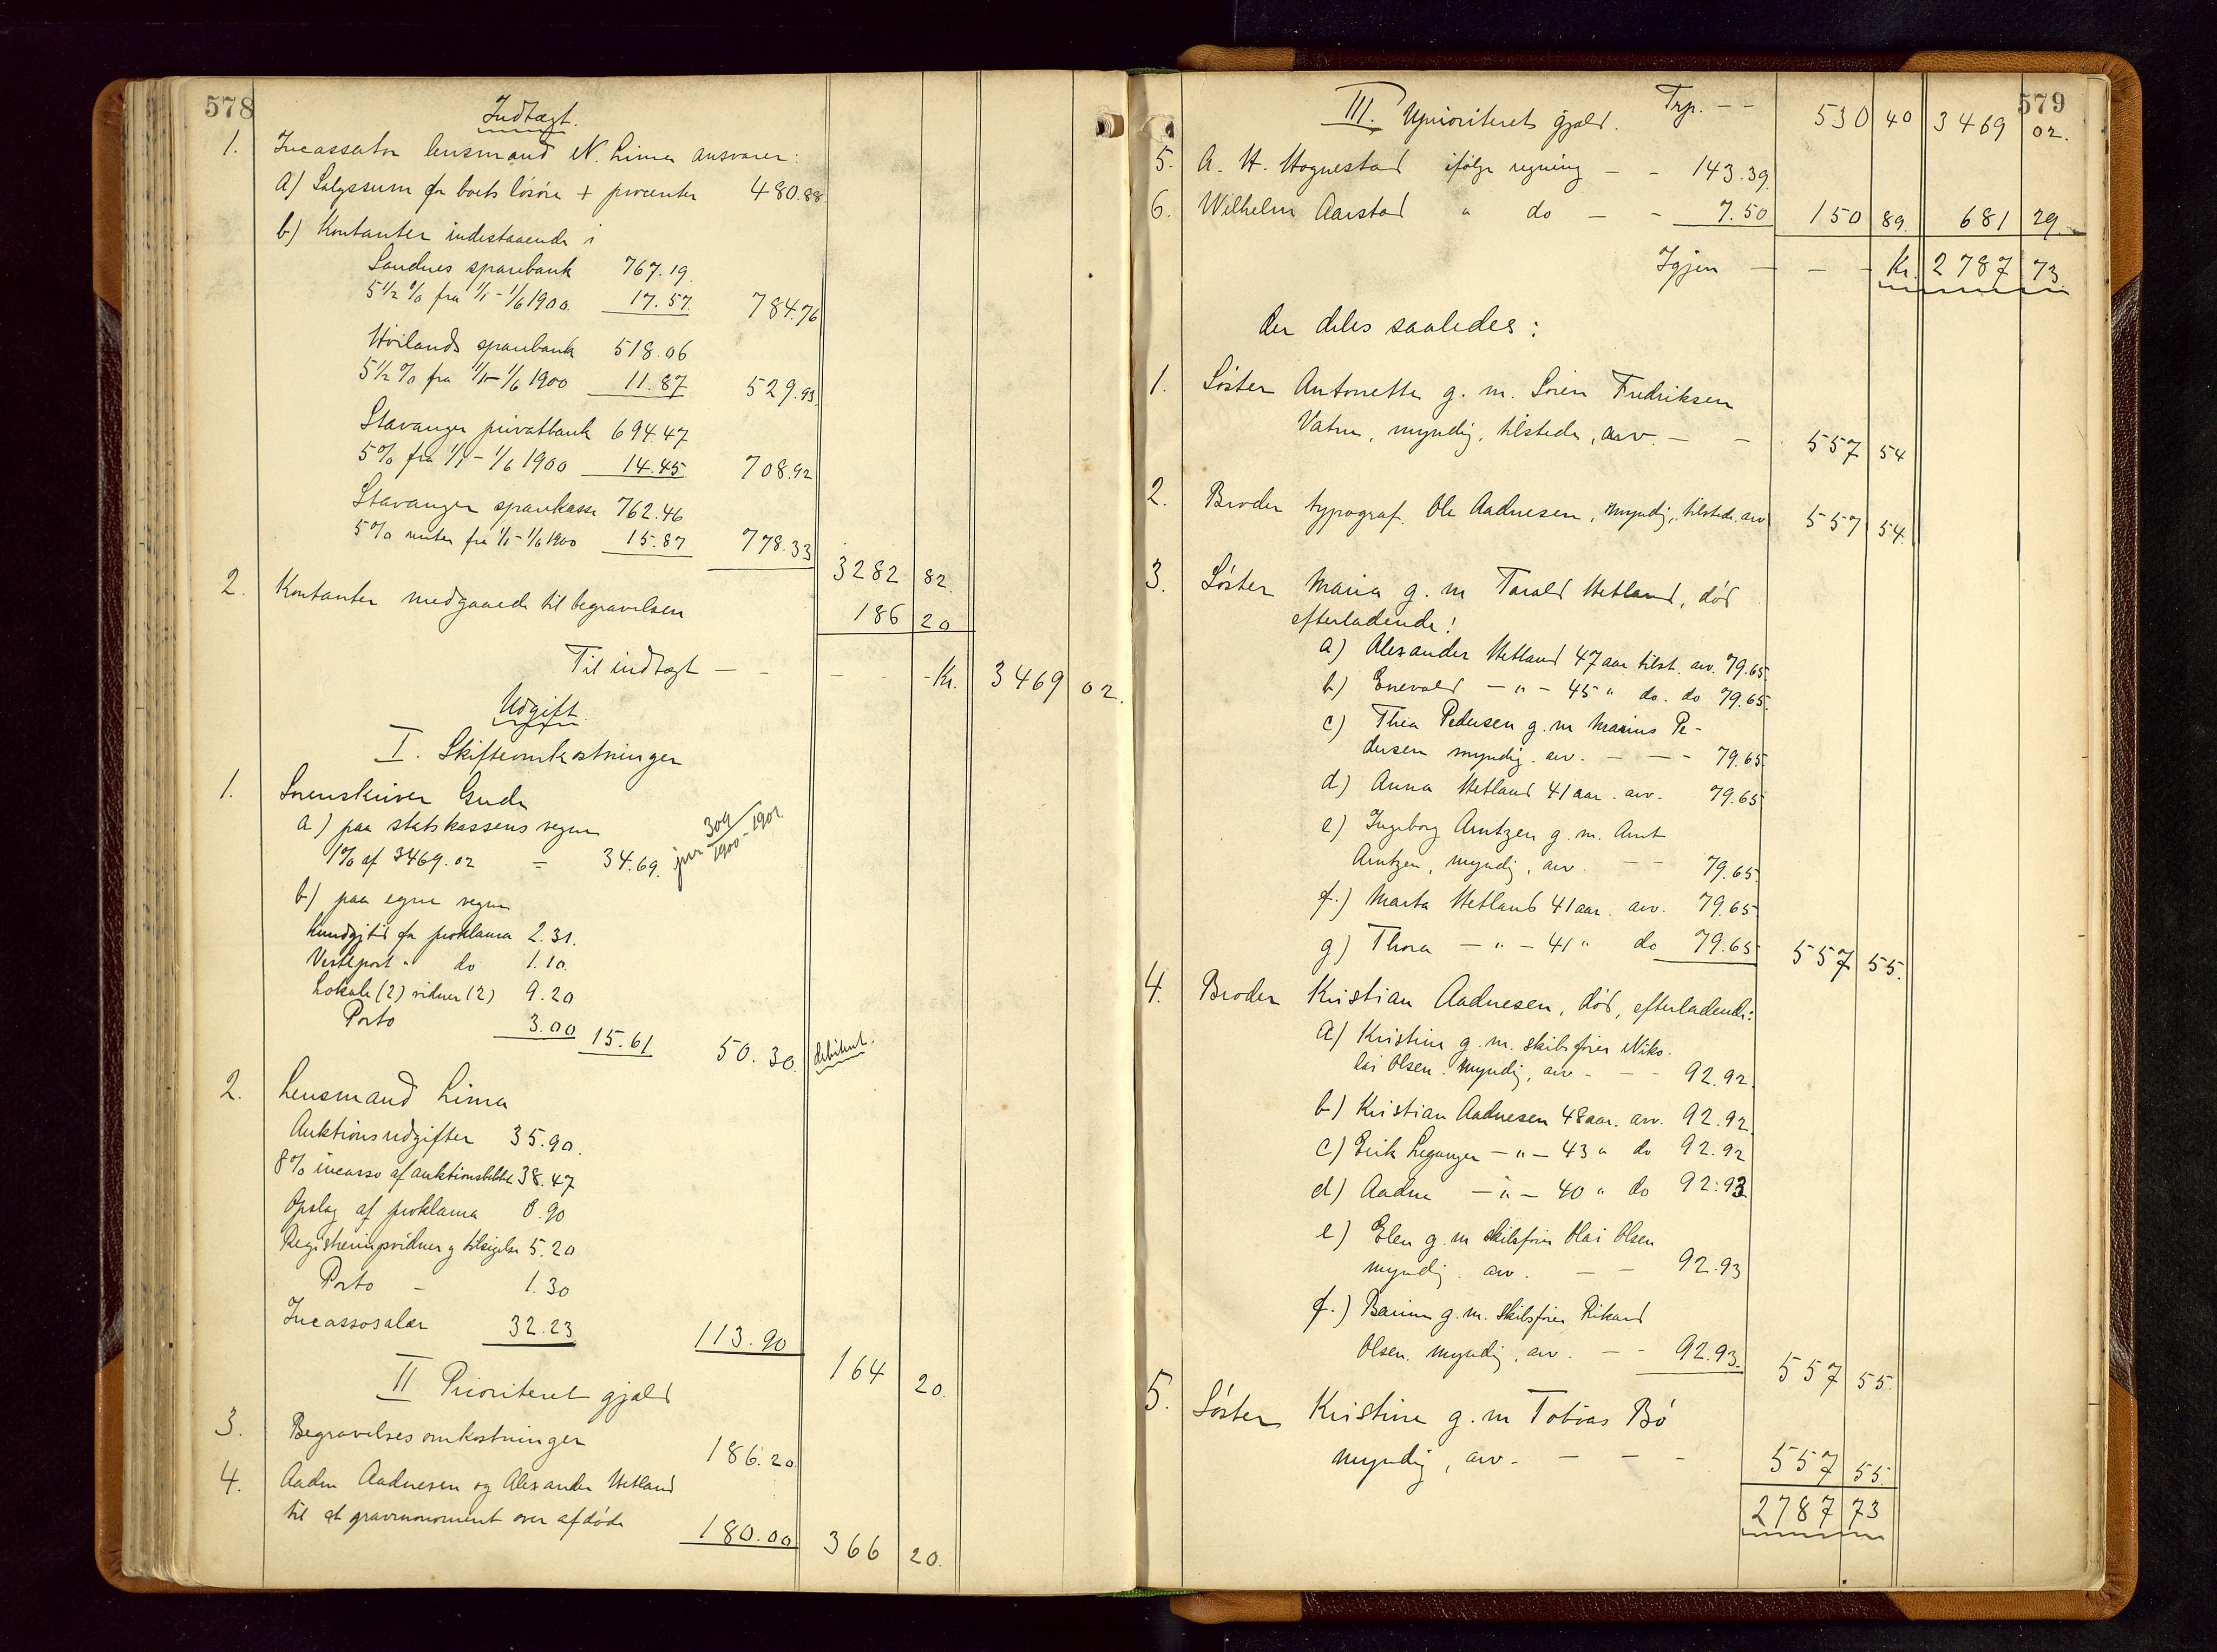 578
Indtægt.
1. Incassator lensmand N. Lima ansvarer:
a) Salgssum for boets løsøre + procenter 480.88.
b) Kontanter indestaaende i
Sandnes sparebank 767.19.
5 1/2 % fra 1/1 - 1/6 1900. 17.57. 784.76
Høilands sparebank 518.06
5 1/2 % fra 1/1 - 1/6 1900 11.87 529.93.
Stavanger privatbank 694.47
5% fra 1/1 - 1/6 1900 14.45 708.92
Stavanger sparekasse 762.46
5% renter fra 1/1 - 1/6 1900 15.87 778.33 3282 82.
2. Kontanter medgaaede til begravelsen 186 20
Til indtægt — - - - Kr. 3469 02.
Udgift.
I. Skifteomkostninger
1. Sorenskriver Gude
a) paa statskassens vegne
1% af 3469.02 = 34.69. jnr 309/1900-1901.
b) paa egne vegne
Kundgjtid for proklama 2.31.
Vestlpost " do 1.10.
Lokale (2) vidner (2) 9.20
Porto 3.00 15.61 50.30. debitert.
2. Lensmand Lima
Auktionsudgifter 35.90.
8% incasso af auktionsbeløbet 38.47
Opslag af proklama 0.90
Registreringsvidner og tilsigelse 5.20
Porto - 1.30
Incassosalær 32.23 113.90 164 20.
II Prioriteret gjæld
3. Begravelsesomkostninger 186.20.
4. Aadne Aadnesen og Alexander Hetland
til et gravmonument over afdøde 180.00 366 20.
579
III. Uprioriteret gjæld. Trp. - - 530 40 3469 02.
5. A. H. Hognestad ifølge regning - - 143.39.
6. Wilhelm Aarstad " do - - 7.50 150 89. 681 29.
Igjen — - - Kr. 2787 73.
der deles saaledes:
1. Søster Antonette g. m. Sören Fredriksen
Vatne, myndig, tilstede, arv. - - 557 54
2. Broder typograf. Ole Aadnesen, myndig, tilstede. arv 557 54.
3. Søster Maria g. m Tarald Hetland, død
efterladende:
a) Alexander Hetland 47 aar tilst. arv. 79.65
b) Enevald - " - 45 " do. do 79.65.
c) Thea Pedersen g. m Marius Pe-
dersen myndig. arv. - - - 79.65.
d) Anna Hetland 41 aar. arv. 79.65
e) Ingeborg Arntzen g. m. Arnt
Arntzen, myndig, arv. - - 79.65.
f.) Marta Hetland 41 aar. arv. 79.65
g) Thora - " - 41 " do 79.65 557 55.
4. Broder Kristian Aadnesen, død, efterladende:
a) Kristine g. m. skibsfører Niko-
lai Olsen. myndig, arv - - - 92.92.
b) Kristian Aadnesen 48 aar. arv. 92.92.
c) Erik Leganger - " - 43 " do 92.92
d) Aadne - " - 40 " do 92.93
e) Elen g. m skibsfører Olai Olsen
myndig. arv. - - 92.93
f.) g. m. skibsfører Rikard
Olsen. myndig, arv. - - 92.93. 557 55.
5. Søster Kristine g. m Tobias Bø
myndig, arv - - - - 557 55.
2787 73